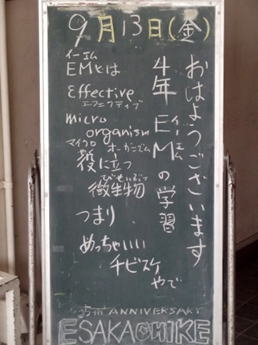 9月13日(金)
おはようございます
4年EMの学習
イーエム
イーエム
EMとは
Effective
エフェクティブ
micro
organism
マイクロ オーガニズム
役に立つ
びせいぶつ
微生物
つまり
めっちゃいい
チビスケ
やで
ANNIVERSARY
ESAKA CHIKE